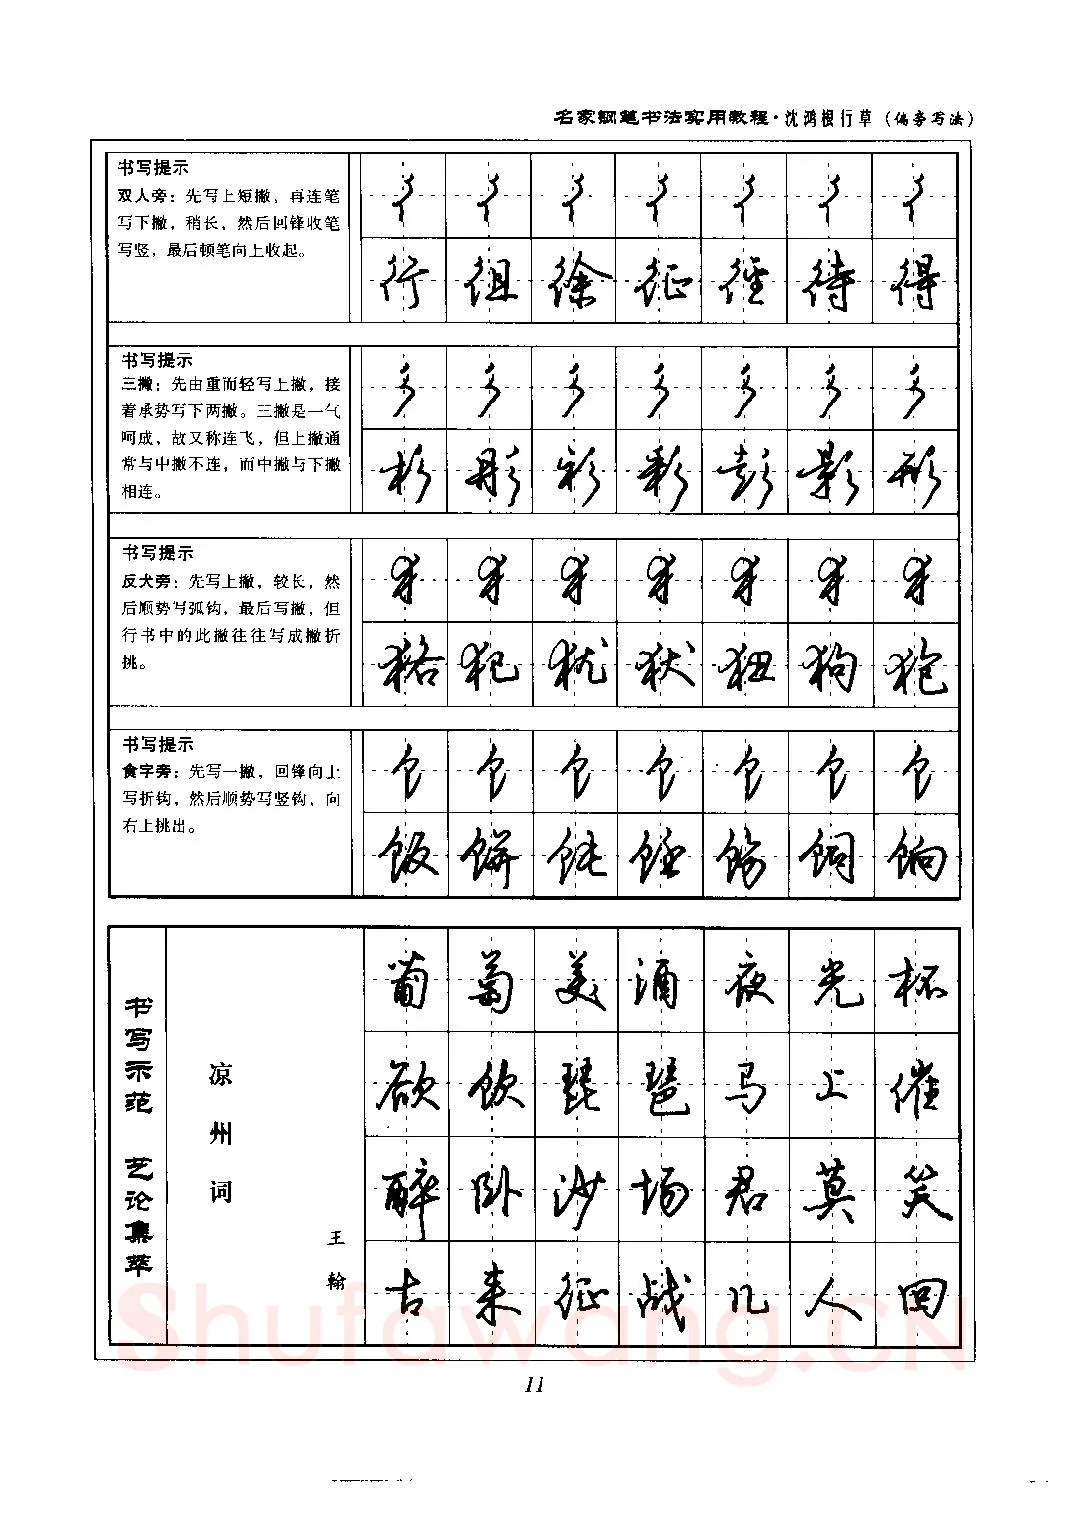 名家钢笔书法实用教程·沈鸿根行草（偏旁写法）
书写提示
双人旁：先写上短撇，再连笔
写下撇，稍长，然后回锋收笔
写竖，最后顿笔向上收起。
彳彳彳彳彳彳彳
行徂徐征徑待得
书写提示
三撇：先由重而轻写上撇，接
着承势写下两撇。三撇是一气
呵成，故又称连飞，但上撇通
常与中撇不连，而中撇与下撇
相连。
彡彡彡彡彡彡彡
杉彤彩彰彭影形
书写提示
反犬旁：先写上撇，较长，然
后顺势写弧钩，最后写撇，但
行书中的此撇往往写成撇折
挑。
犭犭犭犭犭犭犭
狢犯犹狱狃狗狍
书写提示
食字旁：先写一撇，回锋向上
写折钩，然后顺势写竖钩，向
右上挑出。
饣饣饣饣饣饣饣
饭饼饨饳饧饲饷
书写示范 艺论集萃
凉州词
王翰
葡萄美酒夜光杯
欲饮琵琶马上催
醉卧沙场君莫笑
古来征战几人回
Shufawang.CN
11